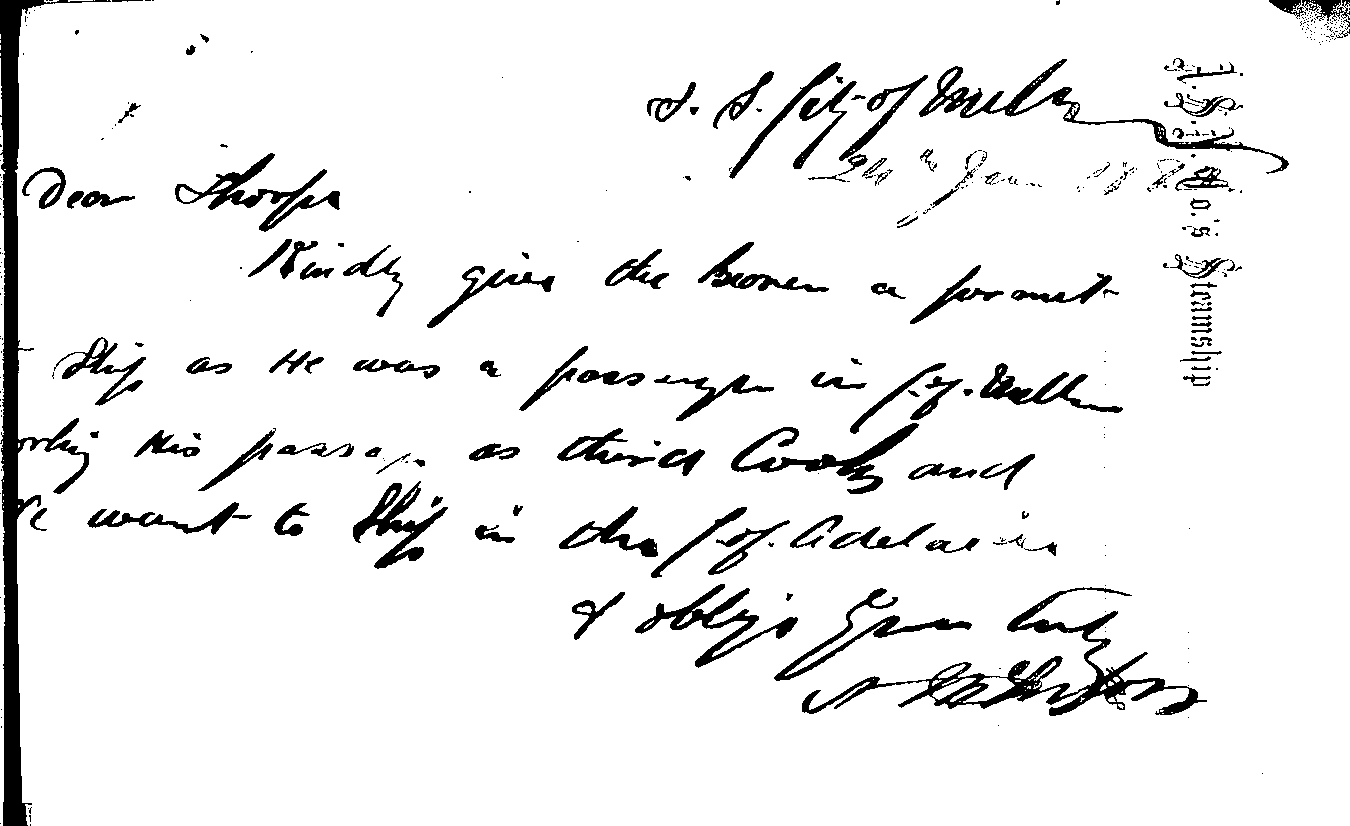 S. S. City of Melb
24th Jan 188
Dear Thorpe
Kindly give the bearer a permit
Ship as He was a passenger in C. of. Melbn
orking His passage as third Cook and
He want to Ship in the C. of. Adelaide
& oblige Yours truly
A.S.N.Co.'s Steamship